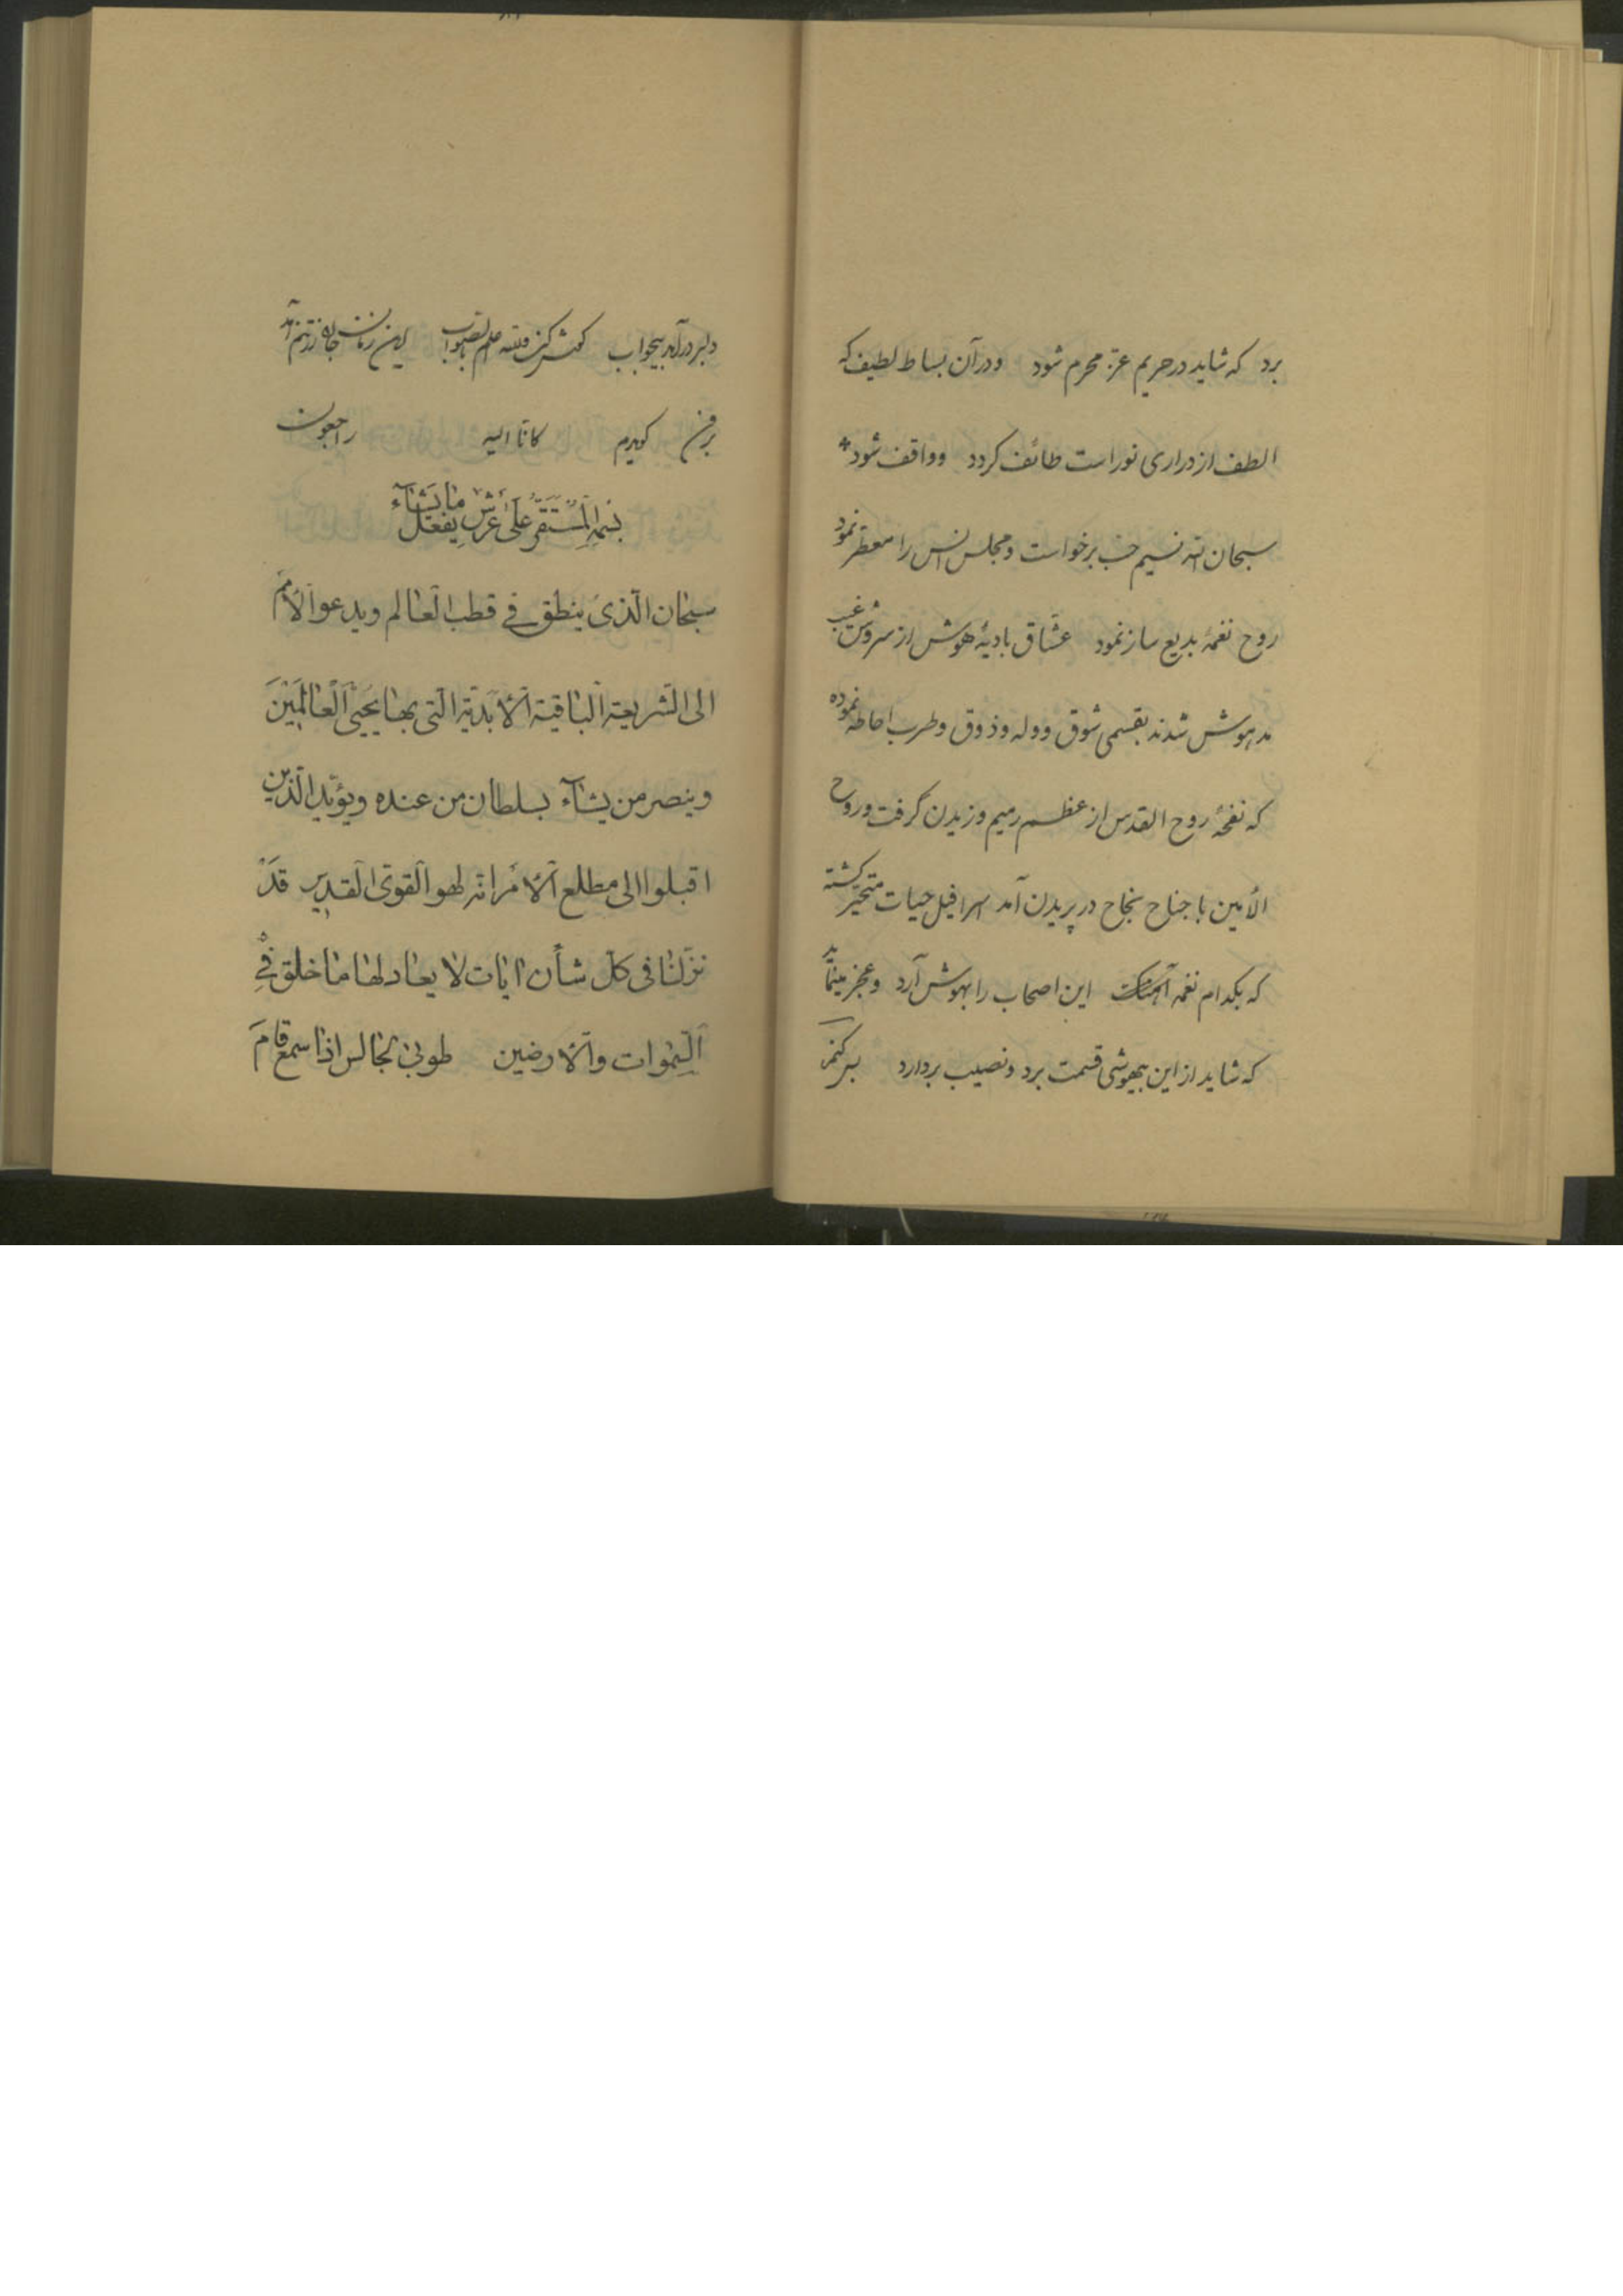 برد که شاید در حریم عزّ محرم شود ودرآن بساط لطیف که
الطف از دراری نور است طائف کردد وواقف شود
سبحان الله نسیم حبّ برخواست ومجلس انس را معطّر نمود
روح نغمهٔ بدیع ساز نمود عشّاق بادیهٔ هوش از سروش غیب
مدهوش شدند بقسمی شوق ووله وذوق وطرب احاطه نموده
که نفحهٔ روح القدس از عظم رمیم وزیدن کرفت وروح
الأمین با جناح نجاح در پریدن آمد اسرافیل حیات متحیّر کشته
که بکدام نغمه این اصحاب را بهوش آرد وعجز مینماید
که شاید از این بیهوشی قسمت برد ونصیب بردارد بس کنم
دلبر درآمد بیجواب کوش کن والله اعلم بالصّواب این زمان جان از تنم آمد
برون کویدم کانّا الیه راجعون
بسمه المستقرّ علی عرش یفعل ما یشآء
سبحان الّذی ینطق فی قطب العالم ویدعو الأمم
الی الشّریعة الباقیة الأبدیّة الّتی بها یحیی العالمین
وینصر من یشآء بسلطان من عنده ویؤیّد الّذین
اقبلوا الی مطلع الأمر انّه لهو القویّ القدیر قد
نزّلنا فی کلّ شأن ایات لا یعادلها ما خلق فی
السّموات والأرضین طوبی لجالس اذا سمع قام